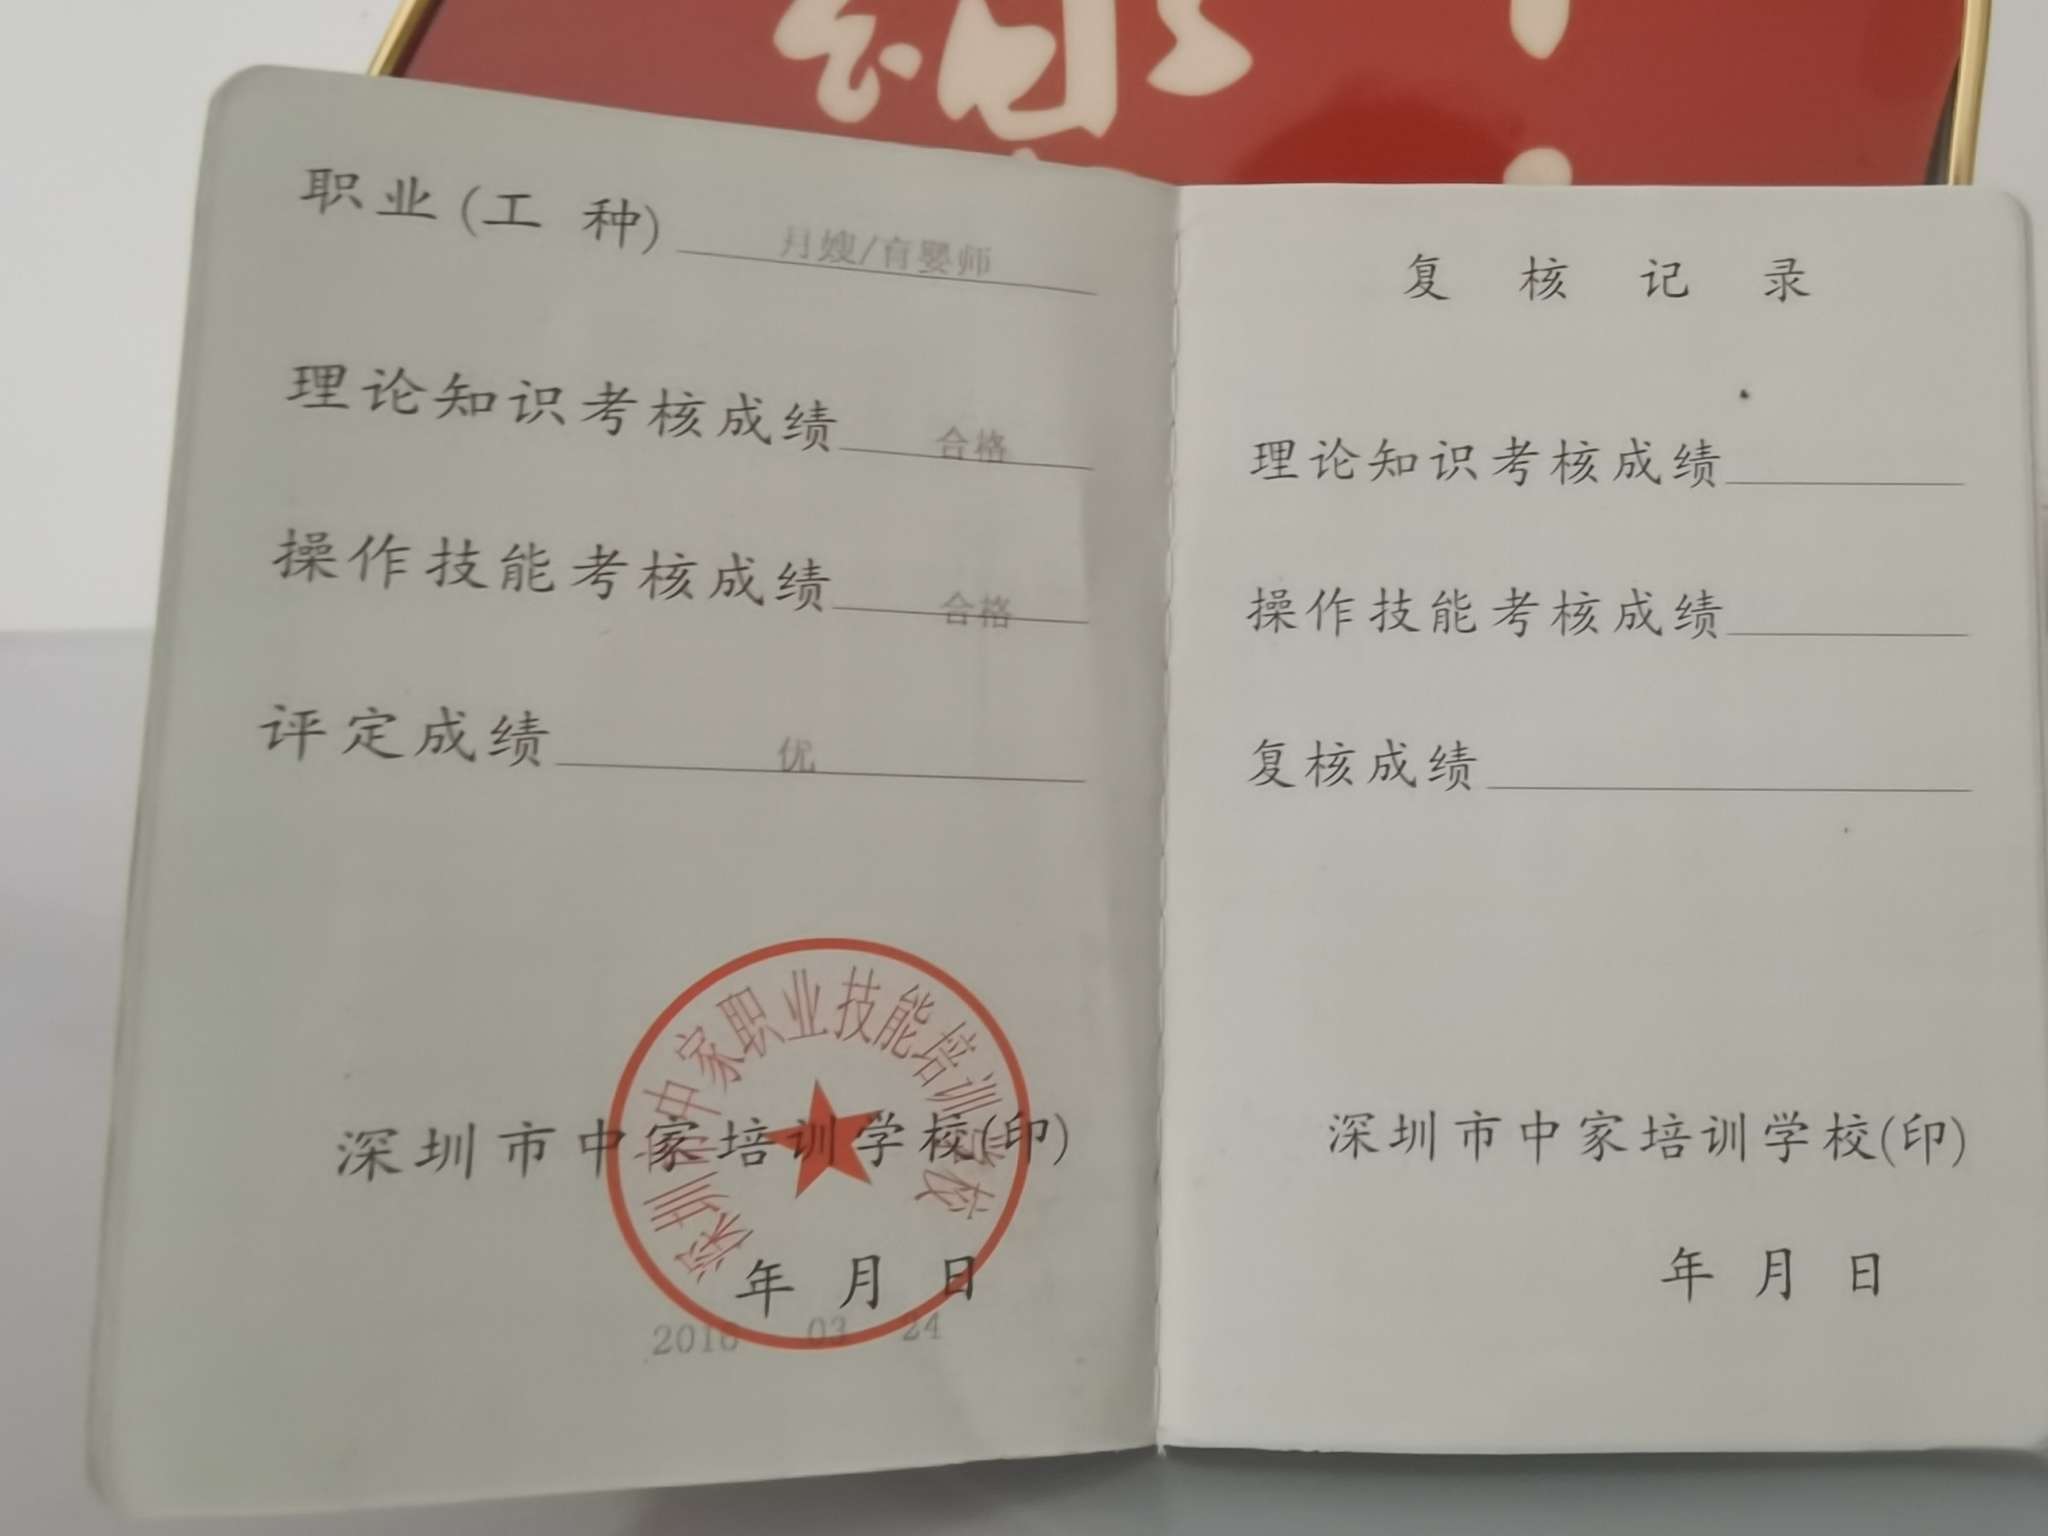 职业(工 种) 月嫂/育婴师
理论知识考核成绩 合格
操作技能考核成绩 合格
评定成绩 优
深圳市中家职业技能培训学校
深圳市中家培训学校(印)
年 月 日
03 24
复 核 记 录
理论知识考核成绩
操作技能考核成绩
复核成绩
深圳市中家培训学校(印)
年 月 日